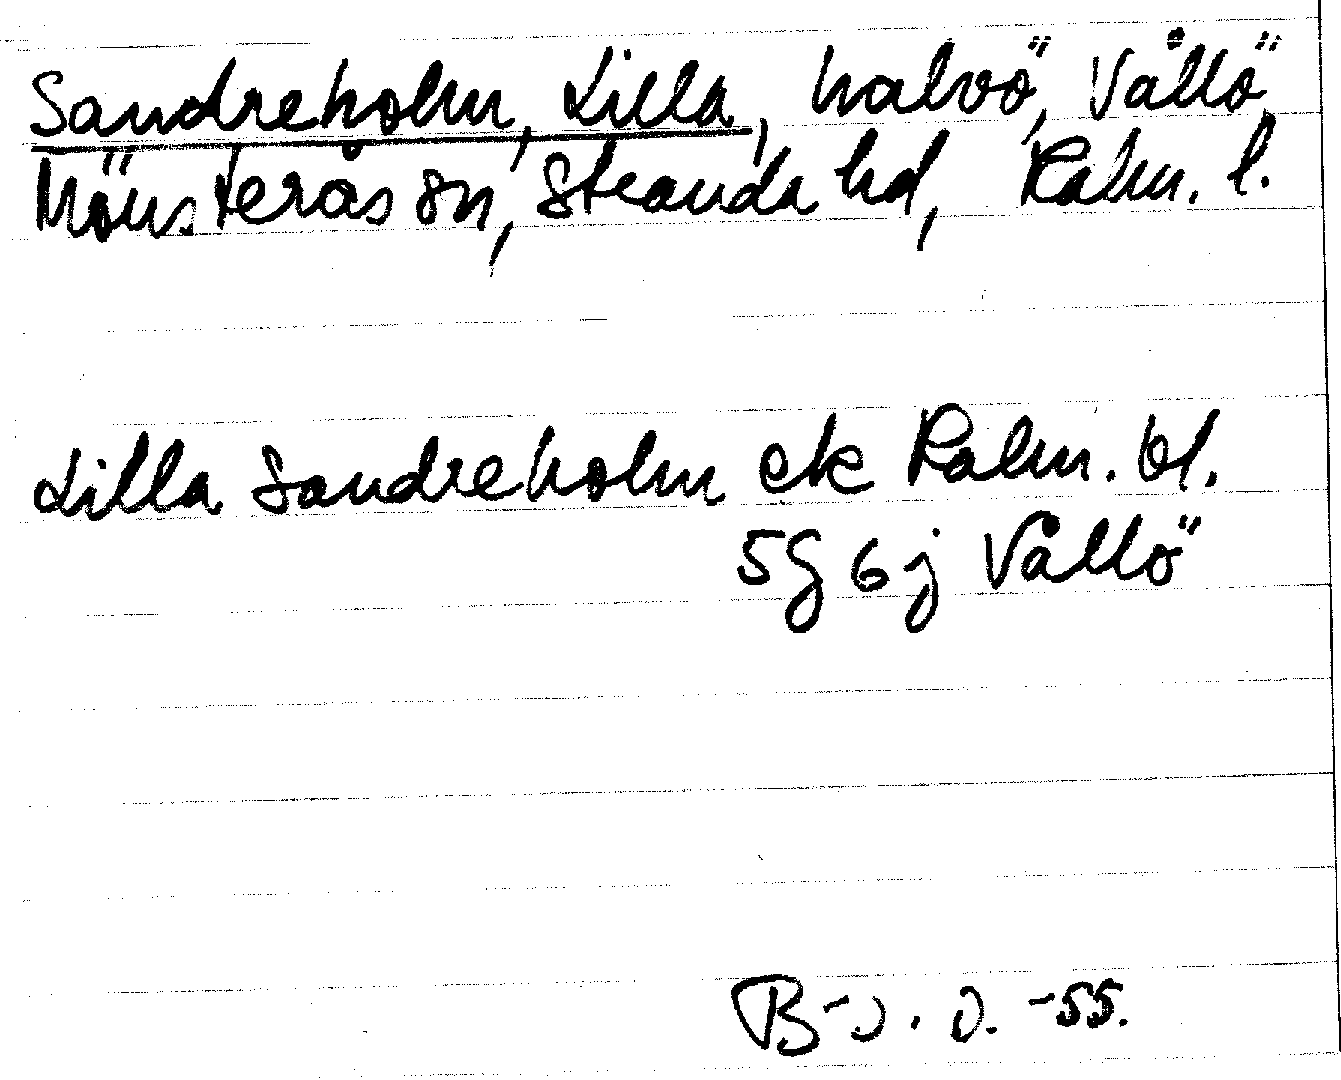 Sandreholm, Lilla, halvö, Vållö,
Mönsterås sn, Stranda hd, Kalm. l.
Lilla Sandreholm ek Kalm. bl.
5g 6j Vållö
B-J. J. -55.